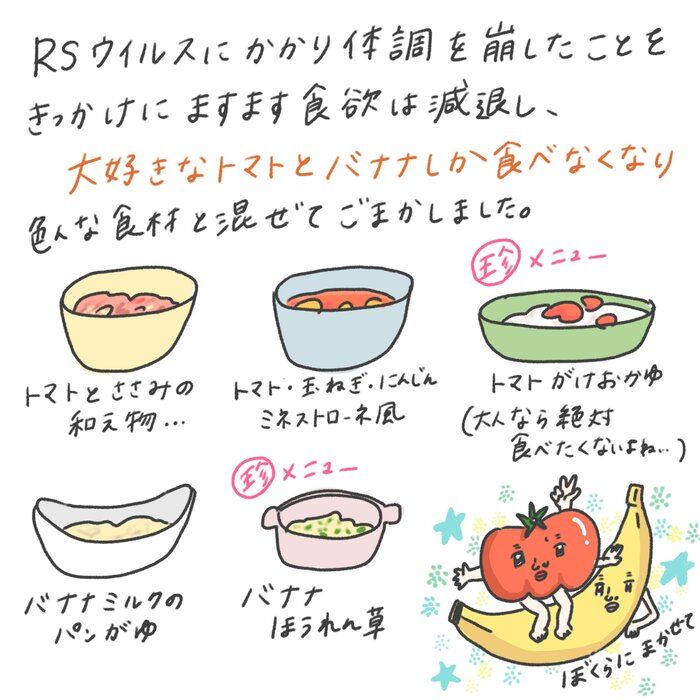 RSウイルスにかかり体調を崩したことを
きっかけにますます食欲は減退し、
大好きなトマトとバナナしか食べなくなり
色んな食材と混ぜてごまかしました。
トマトとささみの
和え物…
トマト・玉ねぎ・にんじん
ミネストローネ風
珍メニュー
トマトがけおかゆ
(大人なら絶対
食べたくないよね…)
バナナミルクの
パンがゆ
珍メニュー
バナナ
ほうれん草
ぼくらにまかせて